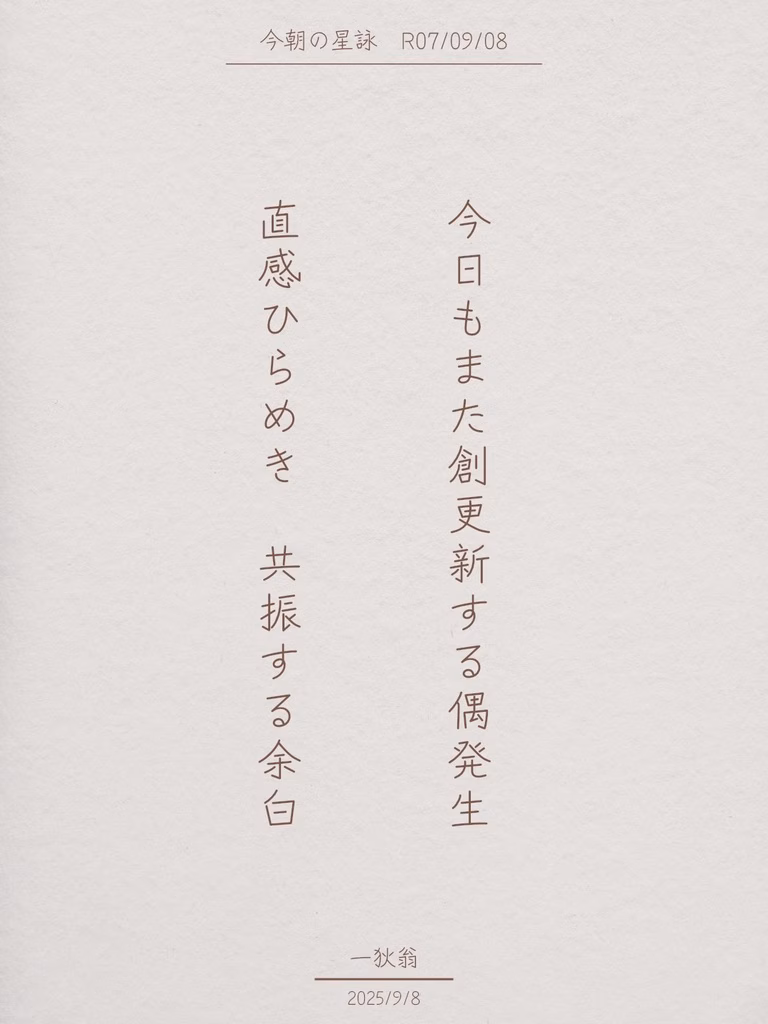 今朝の星詠　R07/09/08
今日もまた創更新する偶発生
直感ひらめき　共振する余白
一狄翁
2025/9/8